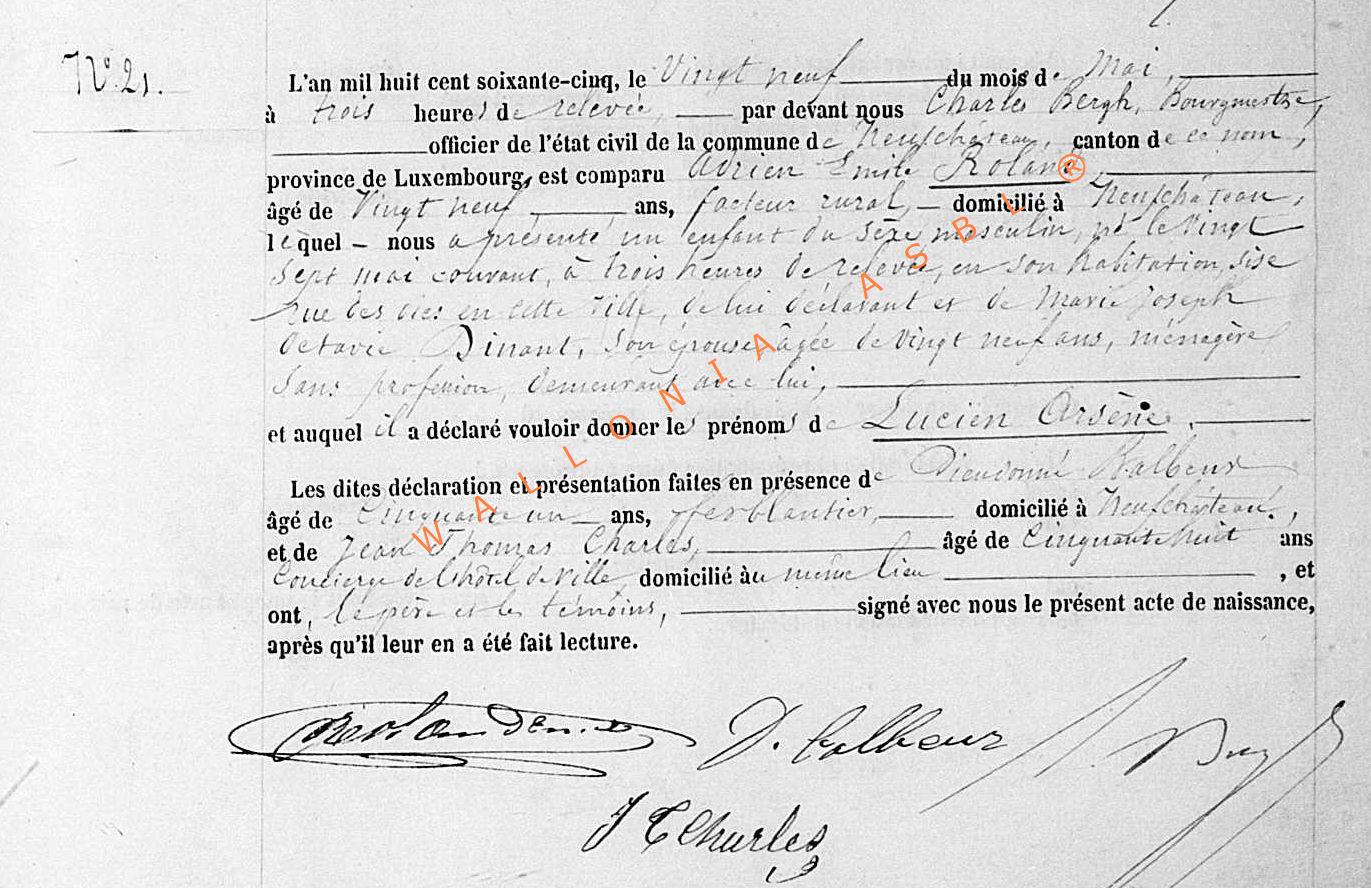 N° 21.
L'an mil huit cent soixante-cinq, le Vingt neuf du mois de Mai,
à trois heures de relevée, par devant nous Charles Bergh, Bourgmestre,
officier de l'état civil de la commune de Neufchâteau, canton de ce nom,
province de Luxembourg, est comparu Adrien Emile Roland,
âgé de Vingt neuf ans, facteur rural, domicilié à Neufchâteau,
lequel – nous a présenté un enfant du sexe masculin, né le Vingt
sept mai courant, à trois heures de relevée, en son habitation, sise
rue des en cette ville, de lui déclarant et de Marie Joseph
Octavie Dinant, son épouse âgée de vingt neuf ans, ménagère
sans profession, demeurant avec lui,
et auquel il a déclaré vouloir donner les prénoms de Lucien Arsène.
Les dites déclaration et présentation faites en présence de Dieudonné
âgé de Cinquante un ans, ferblantier, domicilié à Neufchâteau,
et de Jean Thomas Charles, âgé de Cinquante huit ans
Concierge de l'hôtel de Ville, domicilié au même lieu , et
ont, le père et les témoins, signé avec nous le présent acte de naissance,
après qu'il leur en a été fait lecture.
J T Charles
WALLONIA ASBL ®